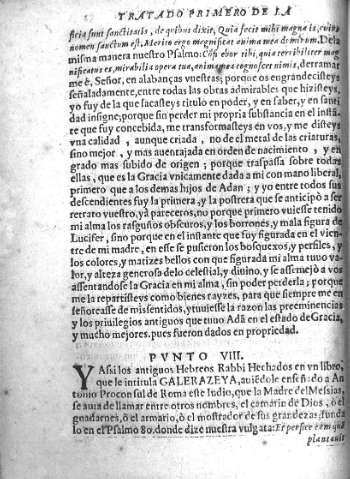 TRATADO PRIMERO DE LA
ficia sunt sanctitatis, de quibus dixit, Quia fecit mihi magna is, cuius
nomen sanctum est, Merito ergo magnificat anima mea dominum. De la
misma manera nuestro Psalmo: Cõfi ebor tibi, quia terribiliter mag
nificatus es, mirabilia opera tua, anima mea cognoscet nimis, derramar
me è, Señor, en alabanças vuestras; porque os engrandecisteys
señaladamente, entre todas las obras admirables que hizisteys,
yo fuy de la que sacasteys titulo en poder, y en saber, y en santi
dad insigne; porque sin perder mi propria substancia en el instã
te que fuy concebida, me transformasteys en vos, y me disteys
vna calidad , aunque criada , no de el metal de las criaturas,
sino mejor , y mas auentajada en orden de nacimiento , y en
grado mas subido de origen ; porque traspassa sobre todas
ellas , que es la Gracia vnicamente dada a mi con mano liberal,
primero que a los demas hijos de Adan ; y yo entre todos sus
descendientes fuy la primera, y la postrera que se anticipò a ser
retrato vuestro, yà pareceros, no porque primero vuiesse tenido
mi alma los rasguños obscuros, y los borrones, y mala figura de
Lucifer , sino porque en el instante que fuy figurada en el vien
tre de mi madre , en esse se pusieron los bosquexos, y perfiles , y
los colores, y matizes bellos con que figurada mi alma tuuo va
lor, y alteza generosa de lo celestial, y diuino, y se assemejò a vos
assentandose la Gracia en mi alma, sin poder perderla ; porque
me la repartisteys como bienes rayzes, para que siempre me en
señorease de mis sentidos, y tuuiesse la razon las preeminencias
y los priuilegios antiguos que tuuo Adã en el estado de Gracia,
y mucho mejores, pues fueron dados en propriedad.
PVNTO VIII.
Y Assi los antiguos Hebreos Rabbi Hechados en vn libro,
que le intitula GALERAZEYA, auiẽdole enseñado a An
tonio Proconsul de Roma este Iudio, que la Madre del Messias,
se auia de llamar entre otros nombres, el camarin de Dios , ò el
guadarnes, ò el armario, ò el mostrador de sus grandezas: funda
lo en el Psalmo 80. donde dize nuestra vulgata: Et perfice eam quã
plantauit